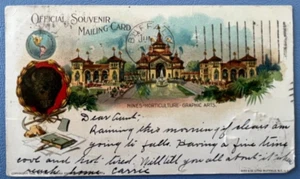 OFFICIAL SOUVENIR
MAILING CARD
MINES-HORTICULTURE-GRAPHIC ARTS.
Dear Aunt:-
Raining this morning if clears am
going to falls. Having a fine time
cool and not tired. Will tell you all about it when
reach home. Carrie